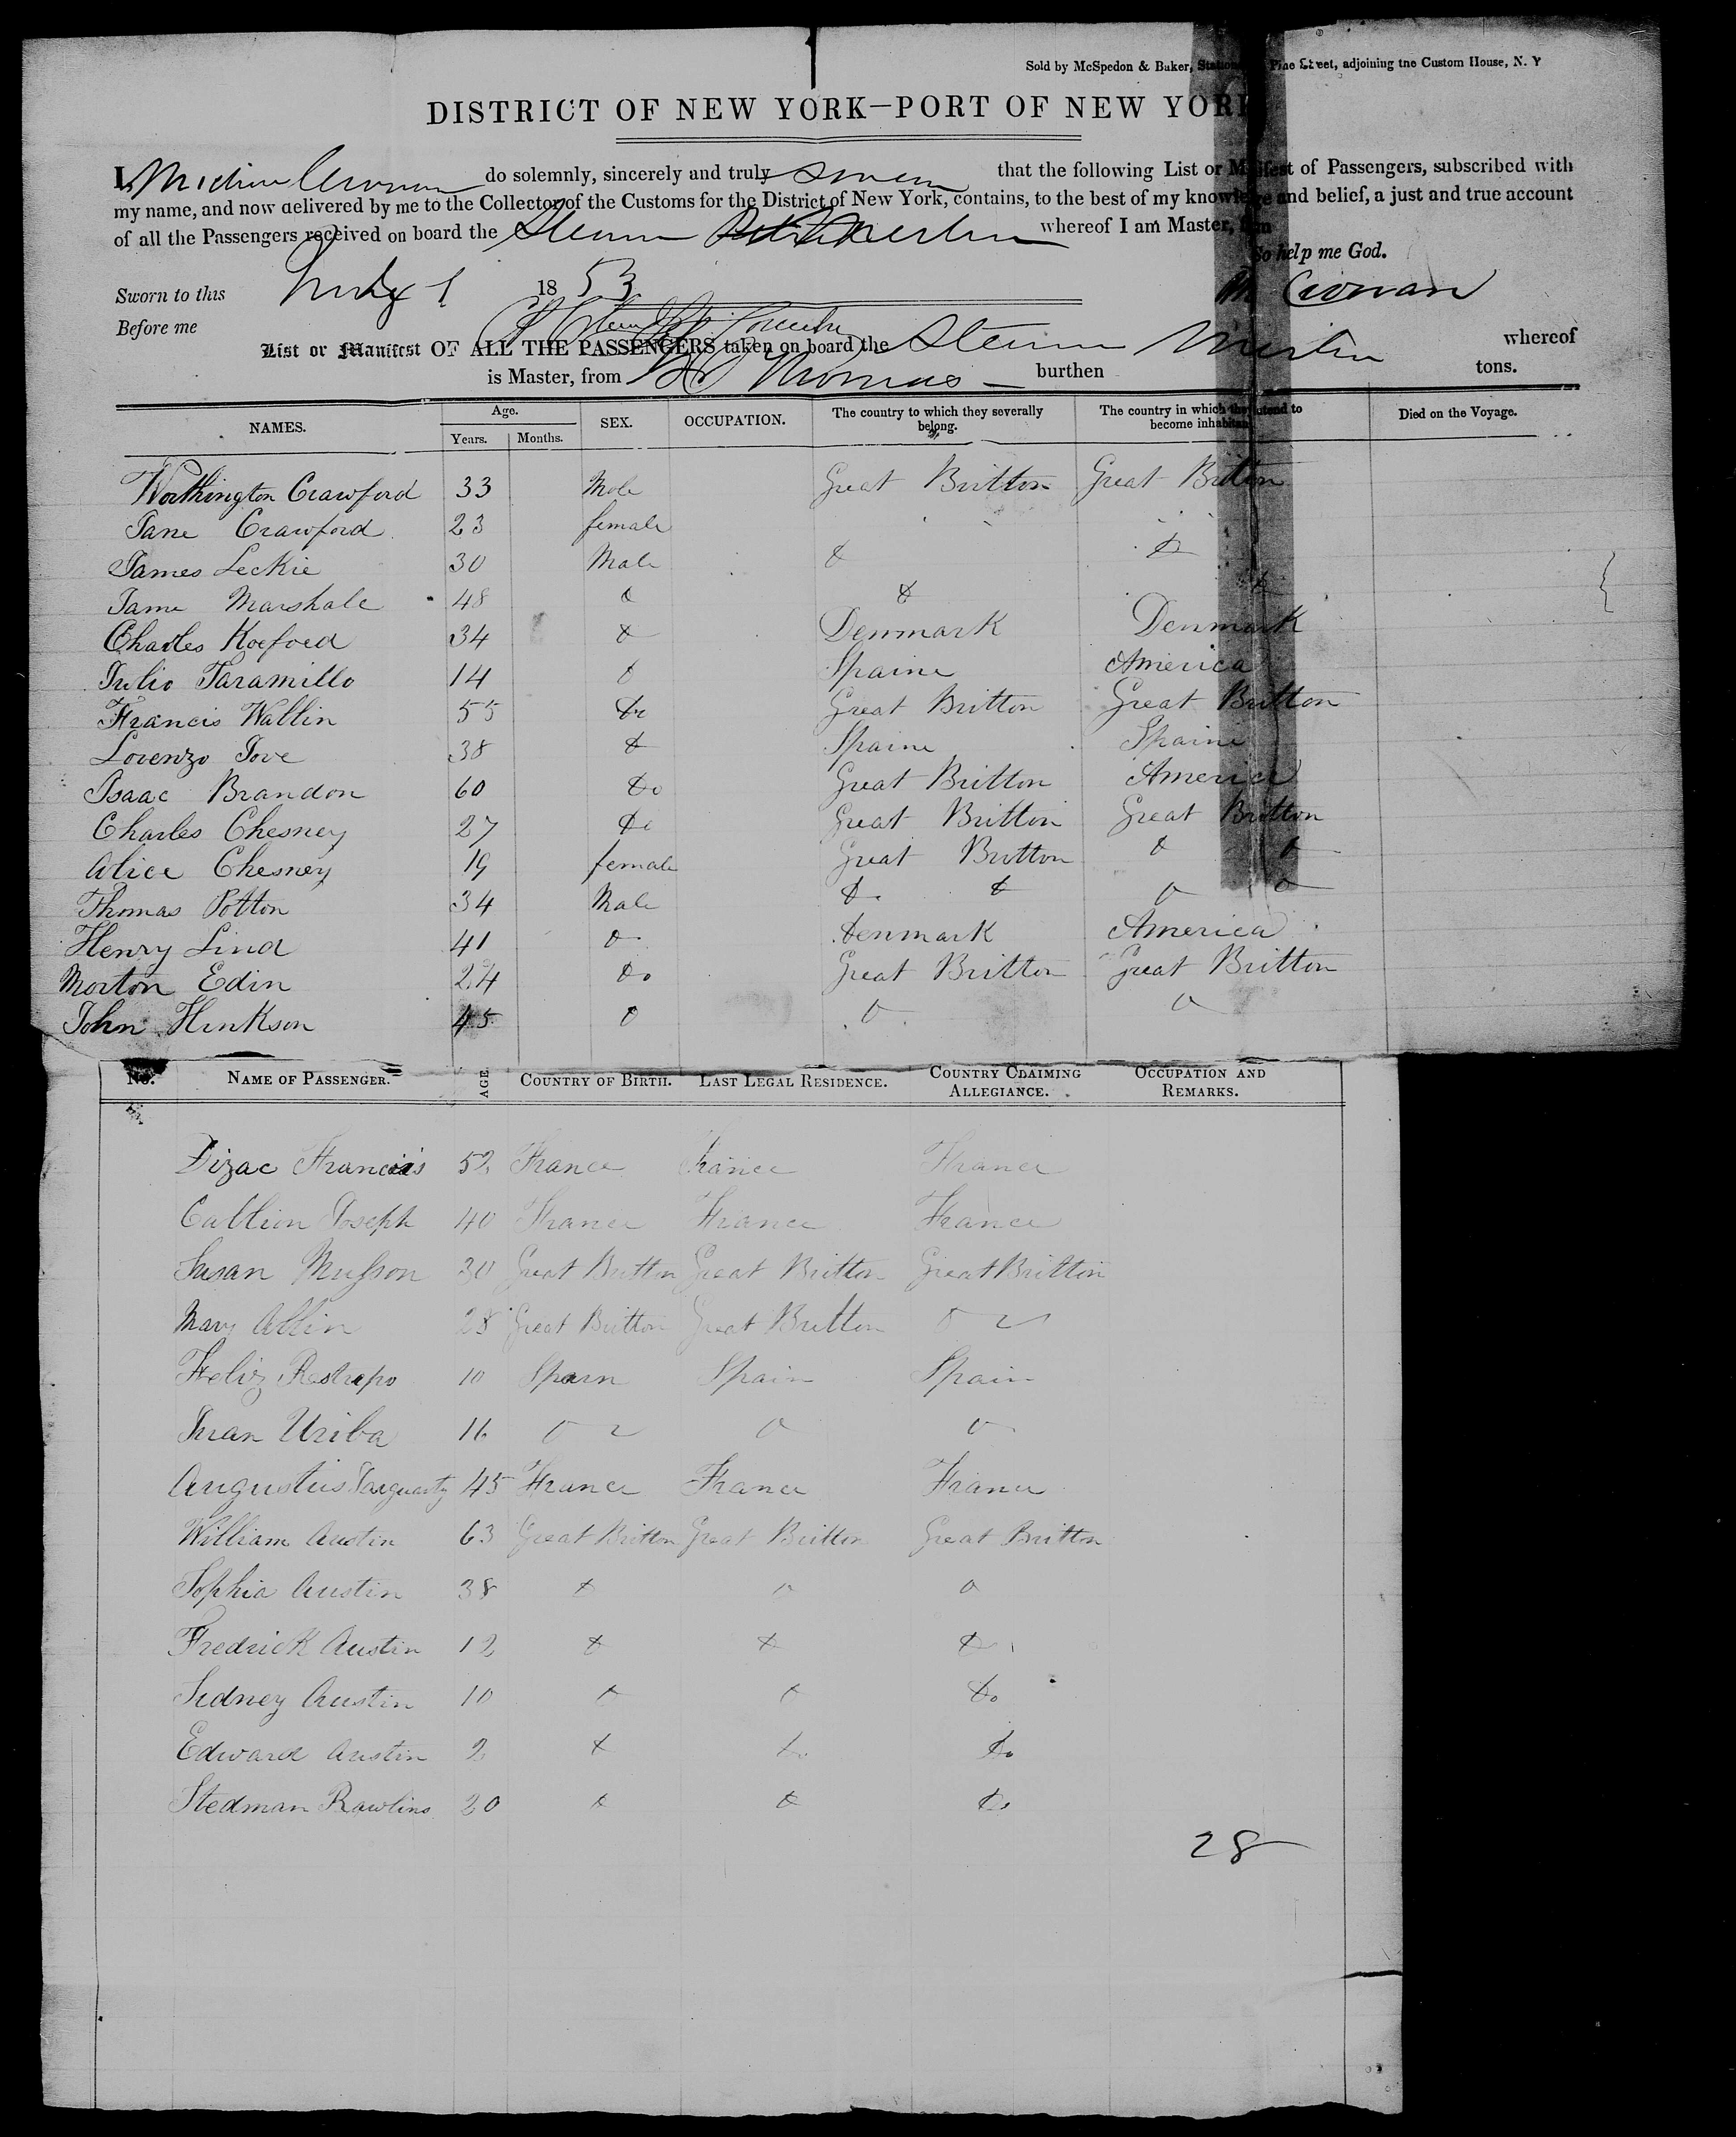 Sold by McSpedon & Baker, Pine Street, adjoining the Custom House, N. Y
DISTRICT OF NEW YORK—PORT OF NEW YORK
I, do solemnly, sincerely and truly swear that the following List or Manifest of Passengers, subscribed with
my name, and now delivered by me to the Collector of the Customs for the District of New York, contains, to the best of my knowledge and belief, a just and true account
of all the Passengers received on board the Steamer Merlin whereof I am Master, from
So help me God.
Sworn to this 1853
M Cronan
Before me
List or Manifest OF ALL THE PASSENGERS taken on board the Steamer Merlin whereof
is Master, from St Thomas burthen tons.
NAMES. Age. Years. Months. SEX. OCCUPATION. The country to which they severally belong. The country in which they intend to become inhabitants. Died on the Voyage.
Worthington Crawford 33 Male Great Britton Great Britton
Jane Crawford 23 female
James Leckie 30 Male do do
Jame Marshale 48 do do do
Charles Koefoed 34 do Denmark Denmark
Julio Jaramillo 14 do Spaine America
Francis Wallin 55 do Great Britton Great Britton
Lorenzo Jove 38 do Spaine Spaine
Isaac Brandon 60 do Great Britton America
Charles Chesney 27 do Great Britton Great Britton
Alice Chesney 19 female Great Britton do do
Thomas Potton 34 Male do do do do
Henry Lind 41 do Denmark America
Morton Edin 24 do Great Britton Great Britton
John Hinkson 45 do do do
No. NAME OF PASSENGER. AGE COUNTRY OF BIRTH. LAST LEGAL RESIDENCE. COUNTRY CLAIMING ALLEGIANCE. OCCUPATION AND REMARKS.
Dizac Francois 52 France France France
Callion Joseph 40 France France France
Susan Musson 30 Great Britton Great Britton Great Britton
Mary Allin 28 Great Britton Great Britton do
Feliz Restrepo 10 Spain Spain Spain
Juan Uriba 16 do do do
Augustus 45 France France France
William Austin 63 Great Britton Great Britton Great Britton
Sophia Austin 38 do do do
Fredrick Austin 12 do do do
Sidney Austin 10 do do do
Edward Austin 2 do do do
Stedman Rawlins 20 do do do
28